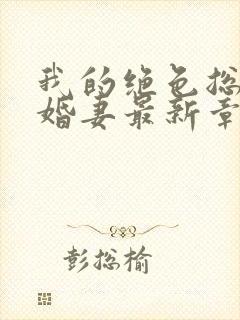 我的绝色总
婚妻最新章
彭总榆